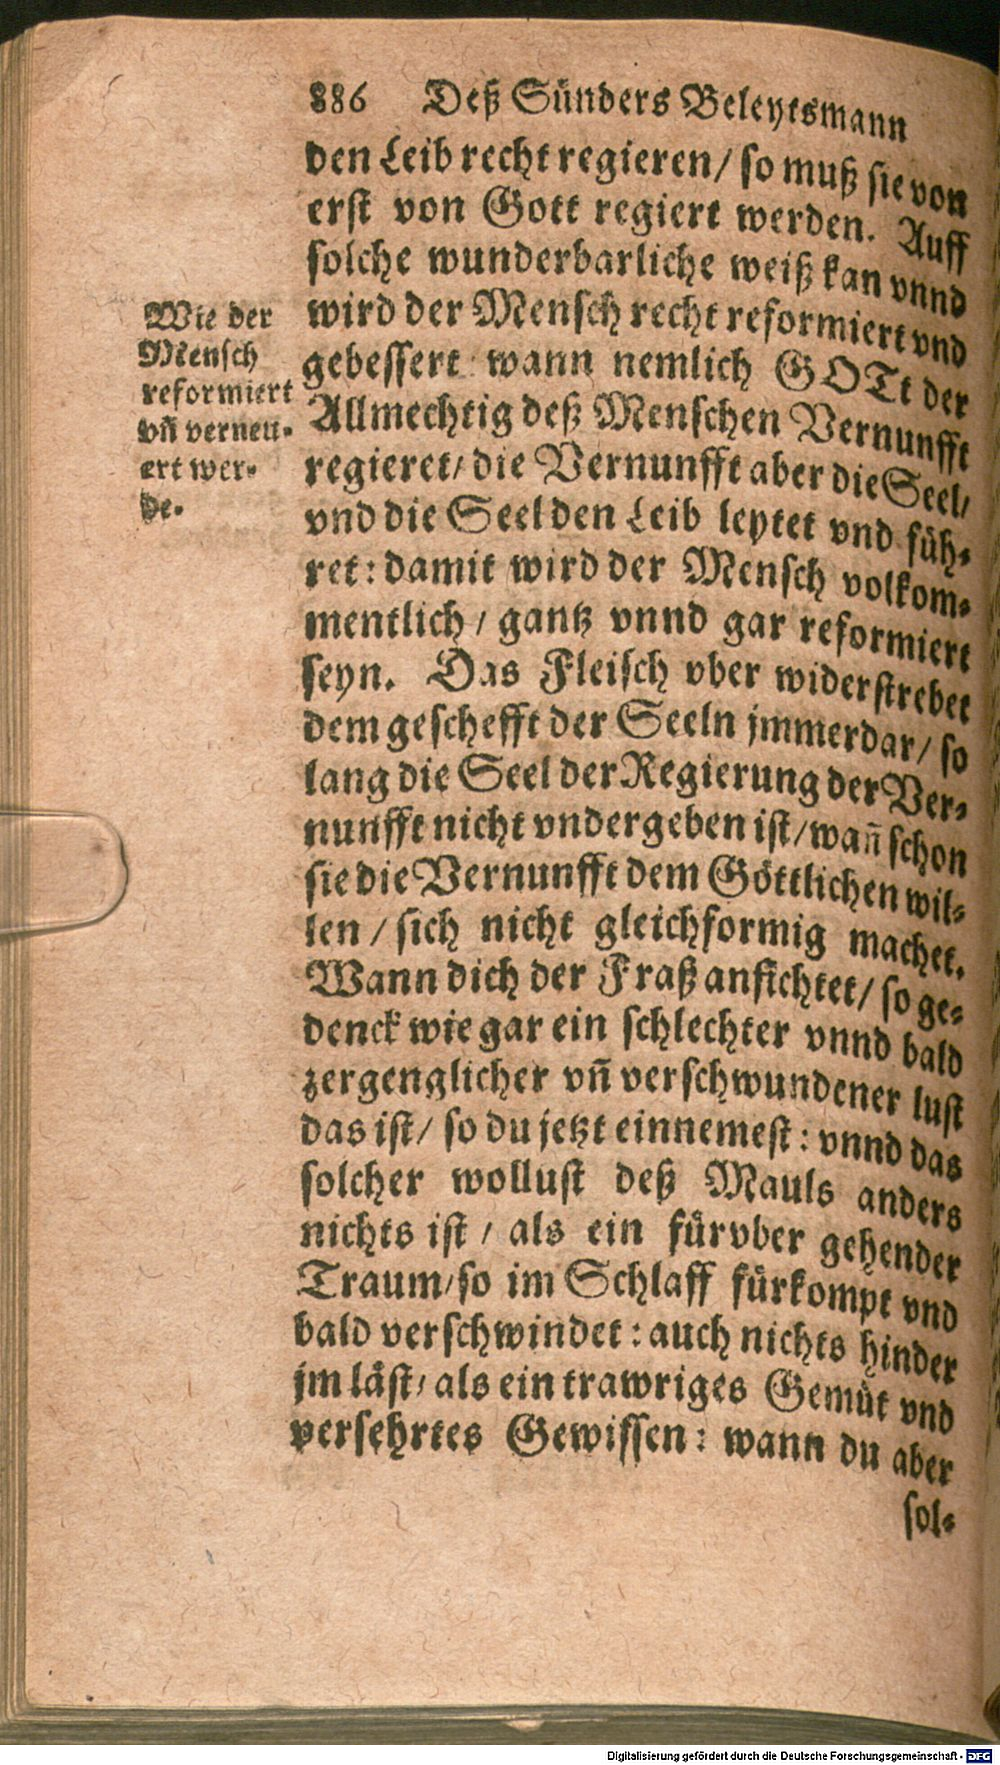 886 Deß Sünders Beleytsmann
den Leib recht regieren/ so muß sie von
erst von Gott regiert werden. Auff
solche wunderbarliche weiß kan vnnd
wird der Mensch recht reformiert vnd
gebessert wann nemlich GOTt der
Allmechtig deß Menschen Vernunfft
regieret/ die Vernunfft aber die Seel/
vnd die Seel den Leib leytet vnd füh-
ret: damit wird der Mensch volkom-
mentlich/ gantz vnnd gar reformiert
seyn. Das Fleisch vber widerstrebet
dem geschefft der Seeln jmmerdar/ so
lang die Seel der Regierung der Ver-
nunfft nicht vndergeben ist/ wañ schon
sie die Vernunfft dem Göttlichen wil-
len/ sich nicht gleichformig machet.
Wann dich der Fraß anfichtet/ so ge-
denck wie gar ein schlechter vnnd bald
zergenglicher vñ verschwundener lust
das ist/ so du jetzt einnemest: vnnd das
solcher wollust deß Mauls anders
nichts ist/ als ein fürvber gehender
Traum/ so im Schlaff fürkompt vnd
bald verschwindet: auch nichts hinder
jm läst/ als ein trawriges Gemüt vnd
versehrtes Gewissen: wann du aber
sol-
Wie der
Mensch
reformiert
vñ verneu-
ert wer-
de.
Digitalisierung gefördert durch die Deutsche Forschungsgemeinschaft - DFG